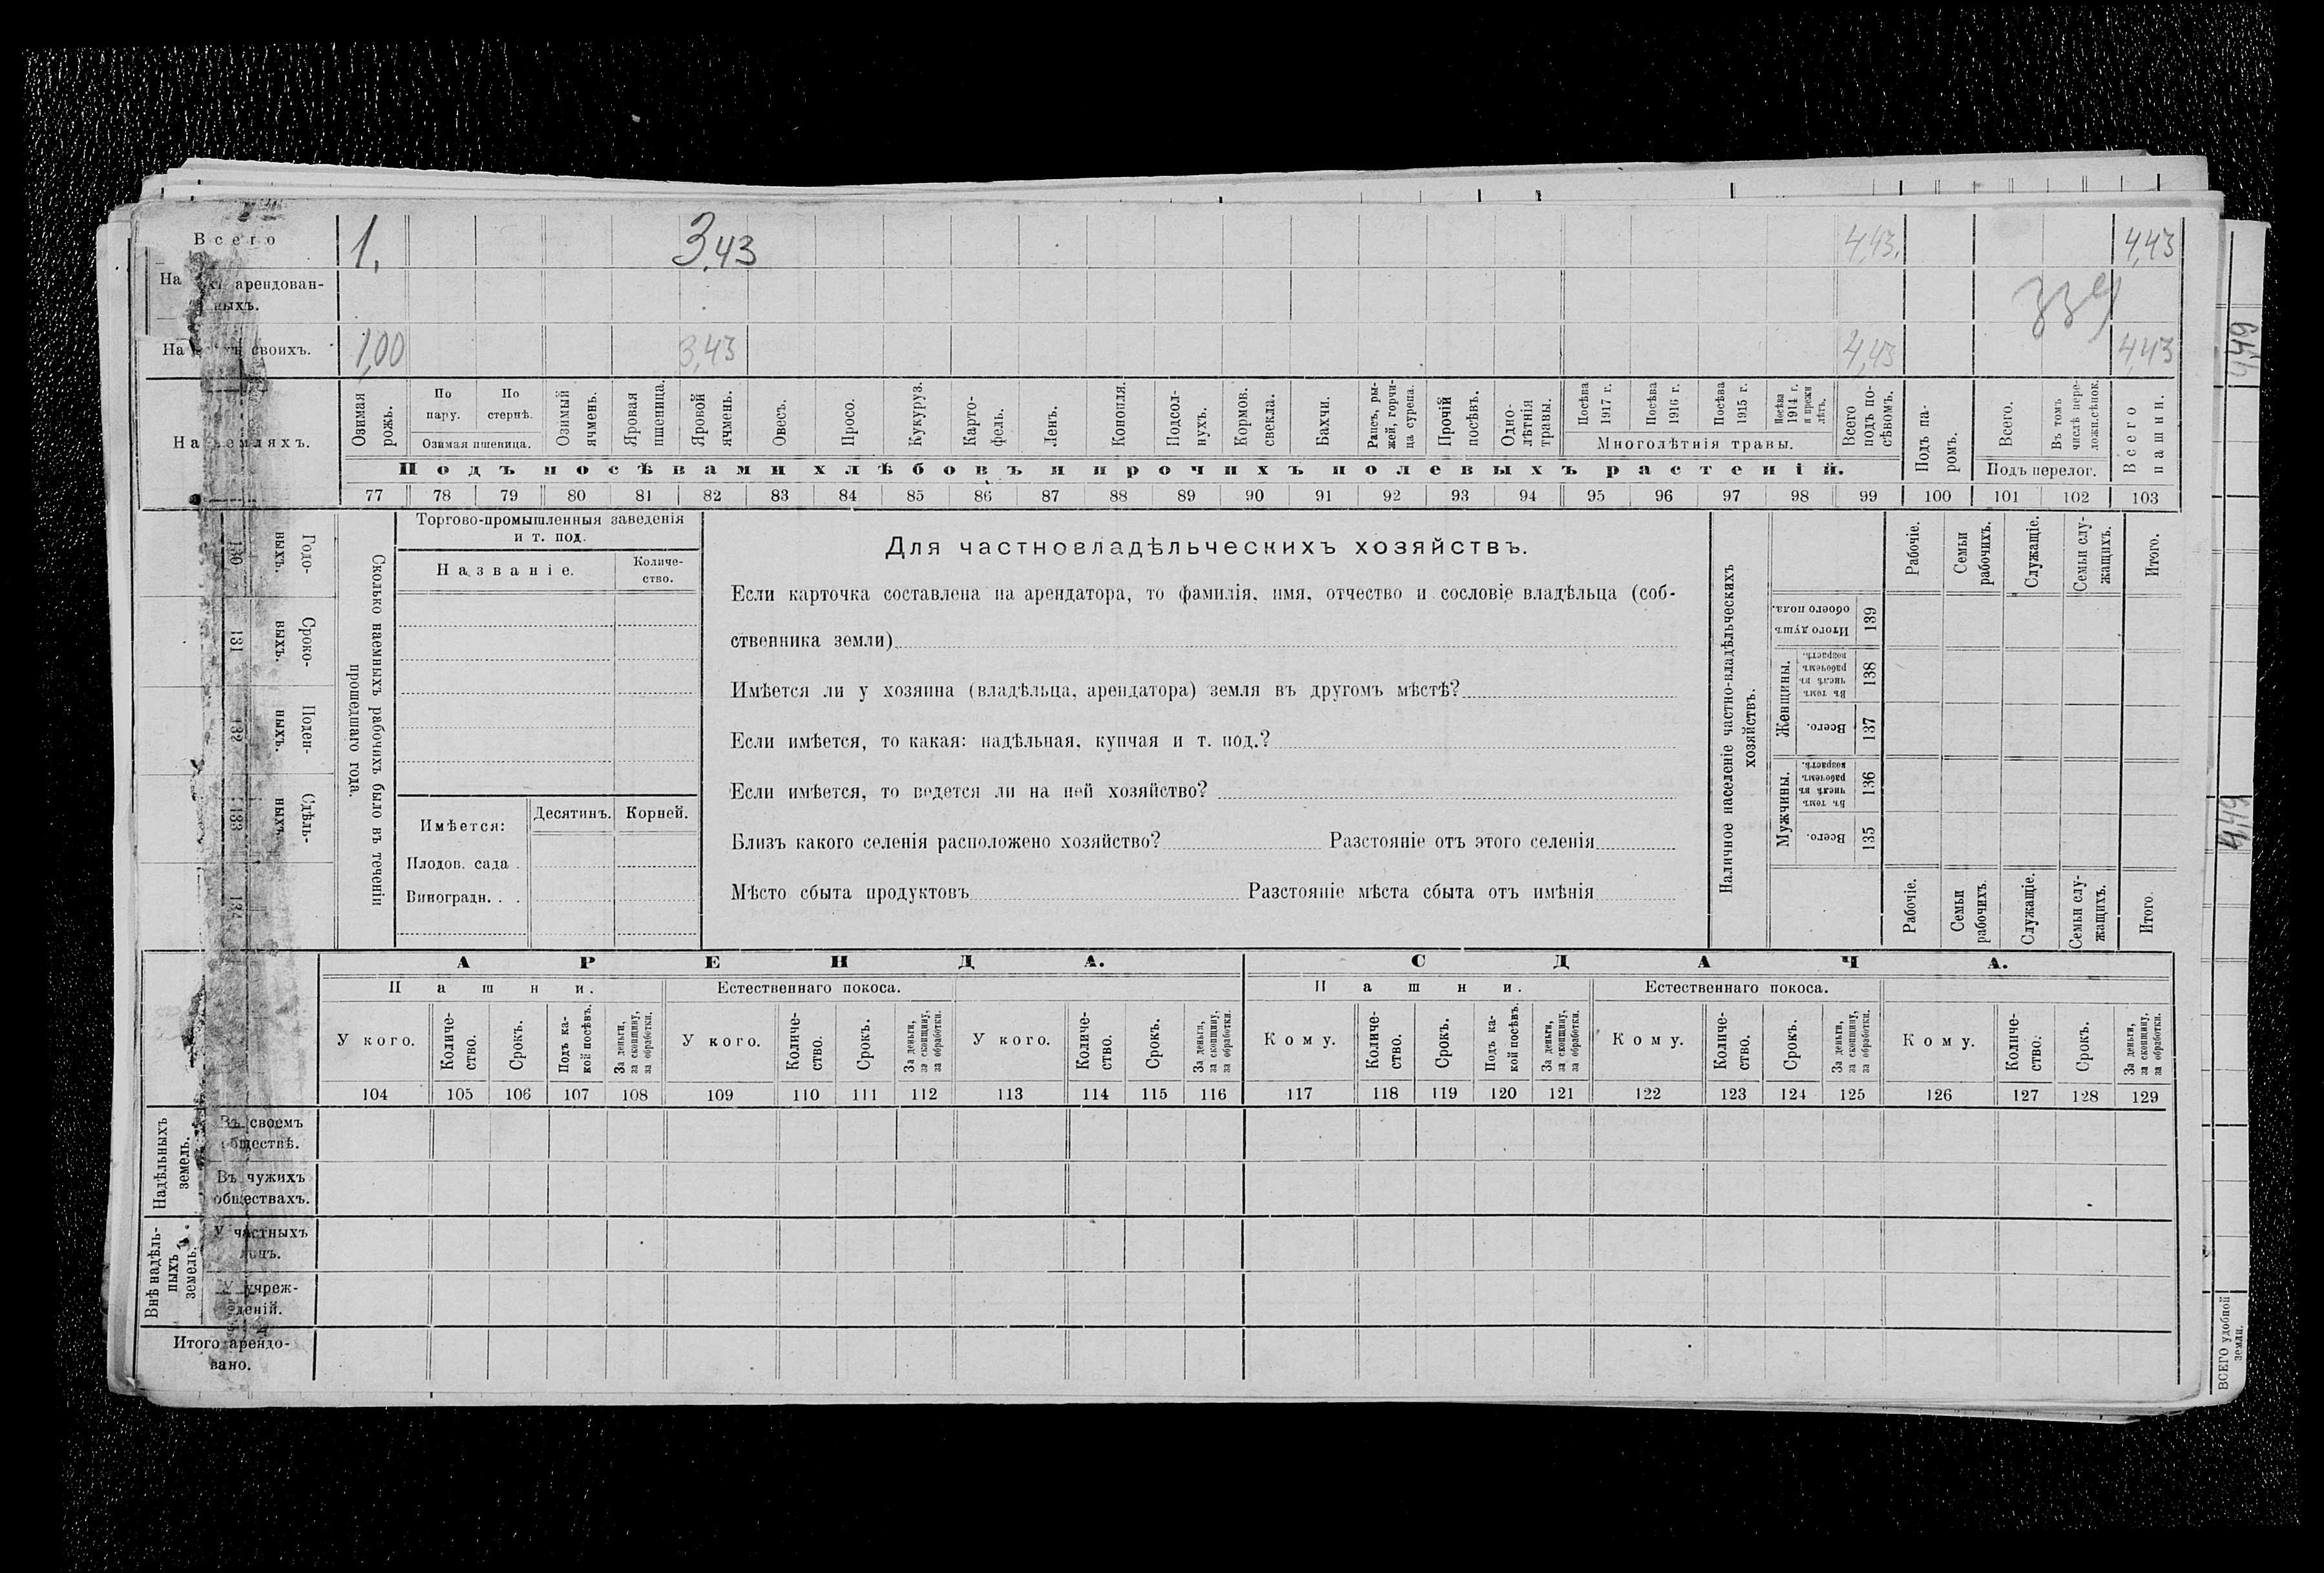 Всего 1, 3,43 4,43, 4,43
На арендован-
ныхъ.
339
На своихъ. 1,00 3,43 4,43 4,43
На земляхъ.
Озимая рожь.
По пару.
По стернѣ.
Озимая пшеница.
Озимый ячмень.
Яровая пшеница.
Яровой ячмень.
Овесъ.
Просо.
Кукуруз.
Карто-
фель.
Ленъ.
Конопля.
Подсол-
нухъ.
Кормов. свекла.
Бахчи.
Рапсъ, ры-
жей, горчи-
ца сурепа.
Прочій посѣвъ.
Одно-
лѣтнія травы.
Посѣва 1917 г.
Посѣва 1916 г.
Посѣва 1915 г.
Посѣва 1914 г. и прежн лѣтъ.
Многолѣтнія травы.
Всего подъ по-
сѣвомъ.
Подъ посѣвами хлѣбовъ и прочихъ полевыхъ растеній.
Подъ па-
ромъ.
Всего.
Въ томъ числѣ пере-
ложн.сѣнок.
Подъ перелог.
Всего пашни.
77 78 79 80 81 82 83 84 85 86 87 88 89 90 91 92 93 94 95 96 97 98 99 100 101 102 103
Годо-
выхъ.
130
Сроко-
выхъ.
131
Поден-
ныхъ.
132
Сдѣль-
ныхъ.
133
134
Сколько наемныхъ рабочихъ было въ теченіи
прошедшаго года.
Торгово-промышленныя заведенія
и т. под.
Названіе.
Количе-
ство.
Имѣется:
Десятинъ. Корней.
Плодов. сада .
Виноградн. . .
Для частновладѣльческихъ хозяйствъ.
Если карточка составлена на арендатора, то фамилія, имя, отчество и сословіе владѣльца (соб-
ственника земли)
Имѣется ли у хозяина (владѣльца, арендатора) земля въ другомъ мѣстѣ?
Если имѣется, то какая: надѣльная, купчая и т. под.?
Если имѣется, то ведется ли на ней хозяйство?
Близъ какого селенія расположено хозяйство? Разстояніе отъ этого селенія
Мѣсто сбыта продуктовъ Разстояніе мѣста сбыта отъ имѣнія
Наличное населеніе частно-владѣльческихъ
хозяйствъ.
Рабочіе.
Семьи рабочихъ.
Служащіе.
Семьи слу-
жащихъ.
Итого.
Итого душъ обоего пола.
139
Женщины.
Въ томъ числѣ въ рабочемъ возрастѣ.
138
Всего.
137
Мужчины.
Въ томъ числѣ въ рабочемъ возрастѣ.
136
Всего.
135
Рабочіе.
Семьи рабочихъ.
Служащіе.
Семьи слу-
жащихъ.
Итого.
АРЕНДА. СДАЧА.
Пашни. Естественнаго покоса. Пашни. Естественнаго покоса.
У кого.
Количе-
ство.
Срокъ.
Подъ ка-
кой посѣвъ.
За деньги, за скопщину, за обработки.
У кого.
Количе-
ство.
Срокъ.
За деньги, за скопщину, за обработки.
У кого.
Количе-
ство.
Срокъ.
За деньги, за скопщину, за обработки.
Кому.
Количе-
ство.
Срокъ.
Подъ ка-
кой посѣвъ.
За деньги, за скопщину, за обработки.
Кому.
Количе-
ство.
Срокъ.
За деньги, за скопщину, за обработки.
Кому.
Количе-
ство.
Срокъ.
За деньги, за скопщину, за обработки.
104 105 106 107 108 109 110 111 112 113 114 115 116 117 118 119 120 121 122 123 124 125 126 127 128 129
Надѣльныхъ
земель.
Въ своемъ
обществѣ.
Въ чужихъ
обществахъ.
Внѣ надѣль-
ныхъ
земель.
У частныхъ
лицъ.
У учреж-
деній.
Итого арендо-
вано.
4,49
4,49
ВСЕГО удобной
земли.